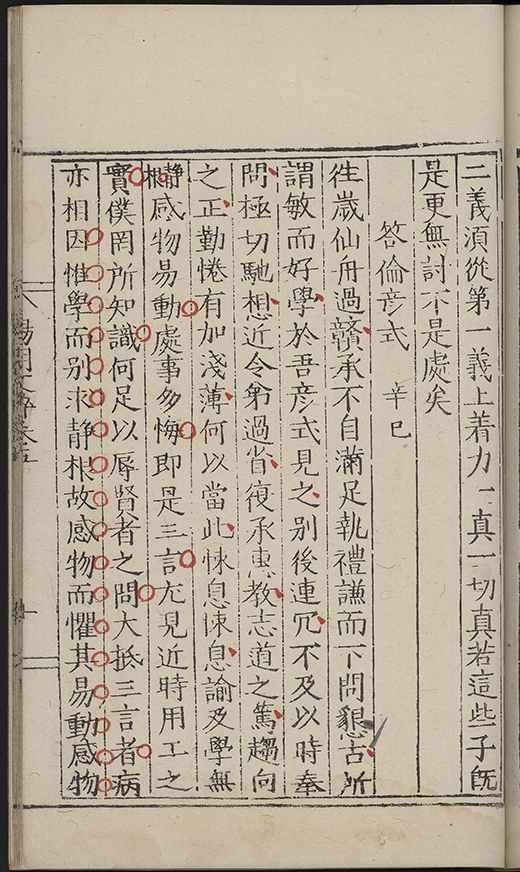 二義須從第一義上着力一真一切真若這些子旣
是更無討不是處矣
答倫彦式 辛巳
徃歲仙舟過贛承不自滿足執禮謙而下問懇古所
謂敏而好學於吾彦式見之别後連冗不及以時奉
問極切馳想近令弟過省復承惠教志道之篤趨向
之正勤惓有加淺薄何以當此悚息悚息諭及學無
靜根感物易動處事多悔即是三言尤見近時用工之
實僕罔所知識何足以辱賢者之問大抵三言者病
亦相因惟學而别求静根故感物而懼其易動感物